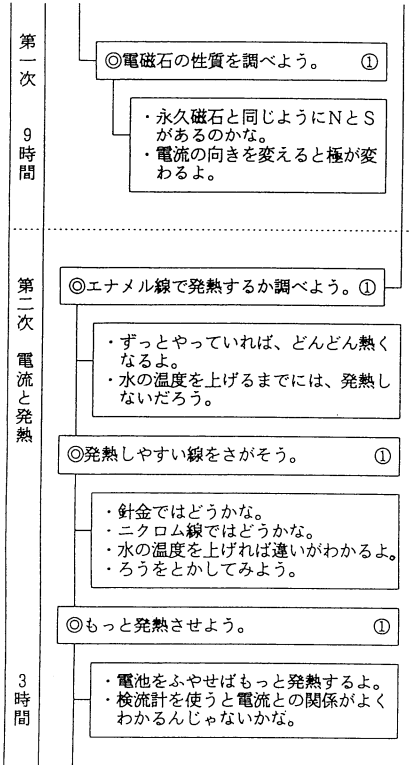 第一次 9時間
◎電磁石の性質を調べよう。 ①
・永久磁石と同じようにNとS
があるのかな。
・電流の向きを変えると極が変
わるよ。
第二次 電流と発熱 3時間
◎エナメル線で発熱するか調べよう。①
・ずっとやっていれば、どんどん熱く
なるよ。
・水の温度を上げるまでには、発熱し
ないだろう。
◎発熱しやすい線をさがそう。 ①
・針金ではどうかな。
・ニクロム線ではどうかな。
・水の温度を上げれば違いがわかるよ。
・ろうをとかしてみよう。
◎もっと発熱させよう。 ①
・電池をふやせばもっと発熱するよ。
・検流計を使うと電流との関係がよく
わかるんじゃないかな。